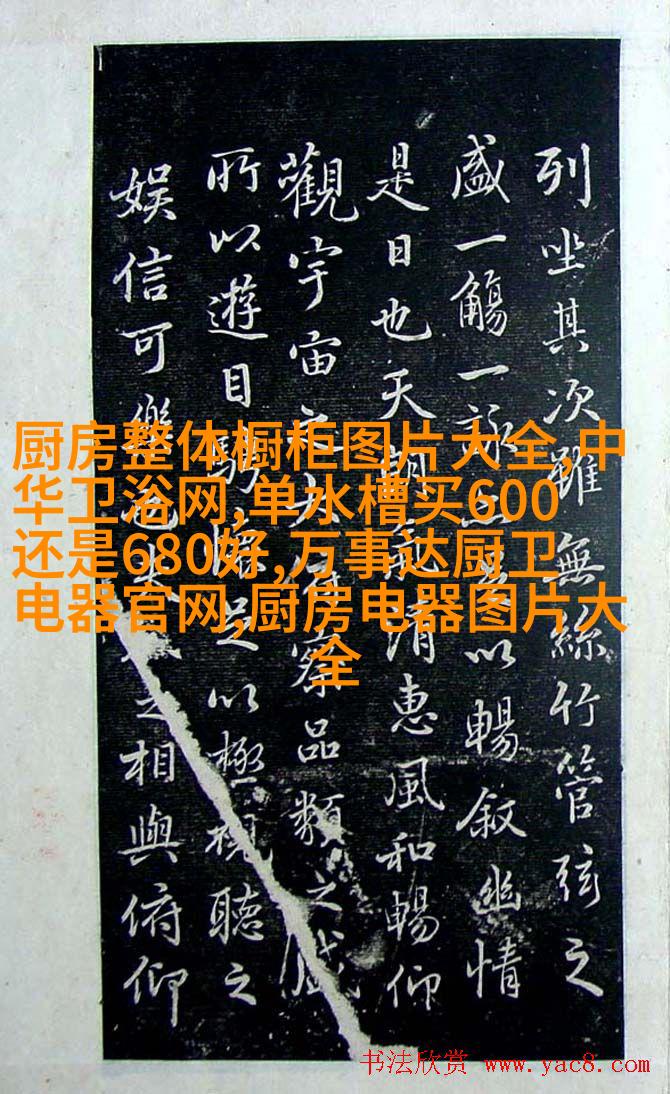 列坐其次雖無絲竹管弦之
盛一觴一詠以暢叙幽情
是日也天朗清惠風和暢仰
觀宇宙之大察品類之盛
所以遊目騁懷足以極視聽之
娛信可樂也夫之相與俯仰
厨房整体橱柜图片大全,中
华卫浴网,单水槽买600
还是680好,万事达厨卫
电器官网,厨房电器图片大
全
书法欣赏 www.yac8.com